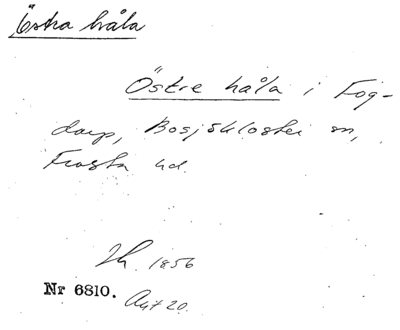 Östra håla
Östre håla i Fog-
darp, Bosjökloster sn,
Frosta hd.
1856
Nr 6810. Akt 20.